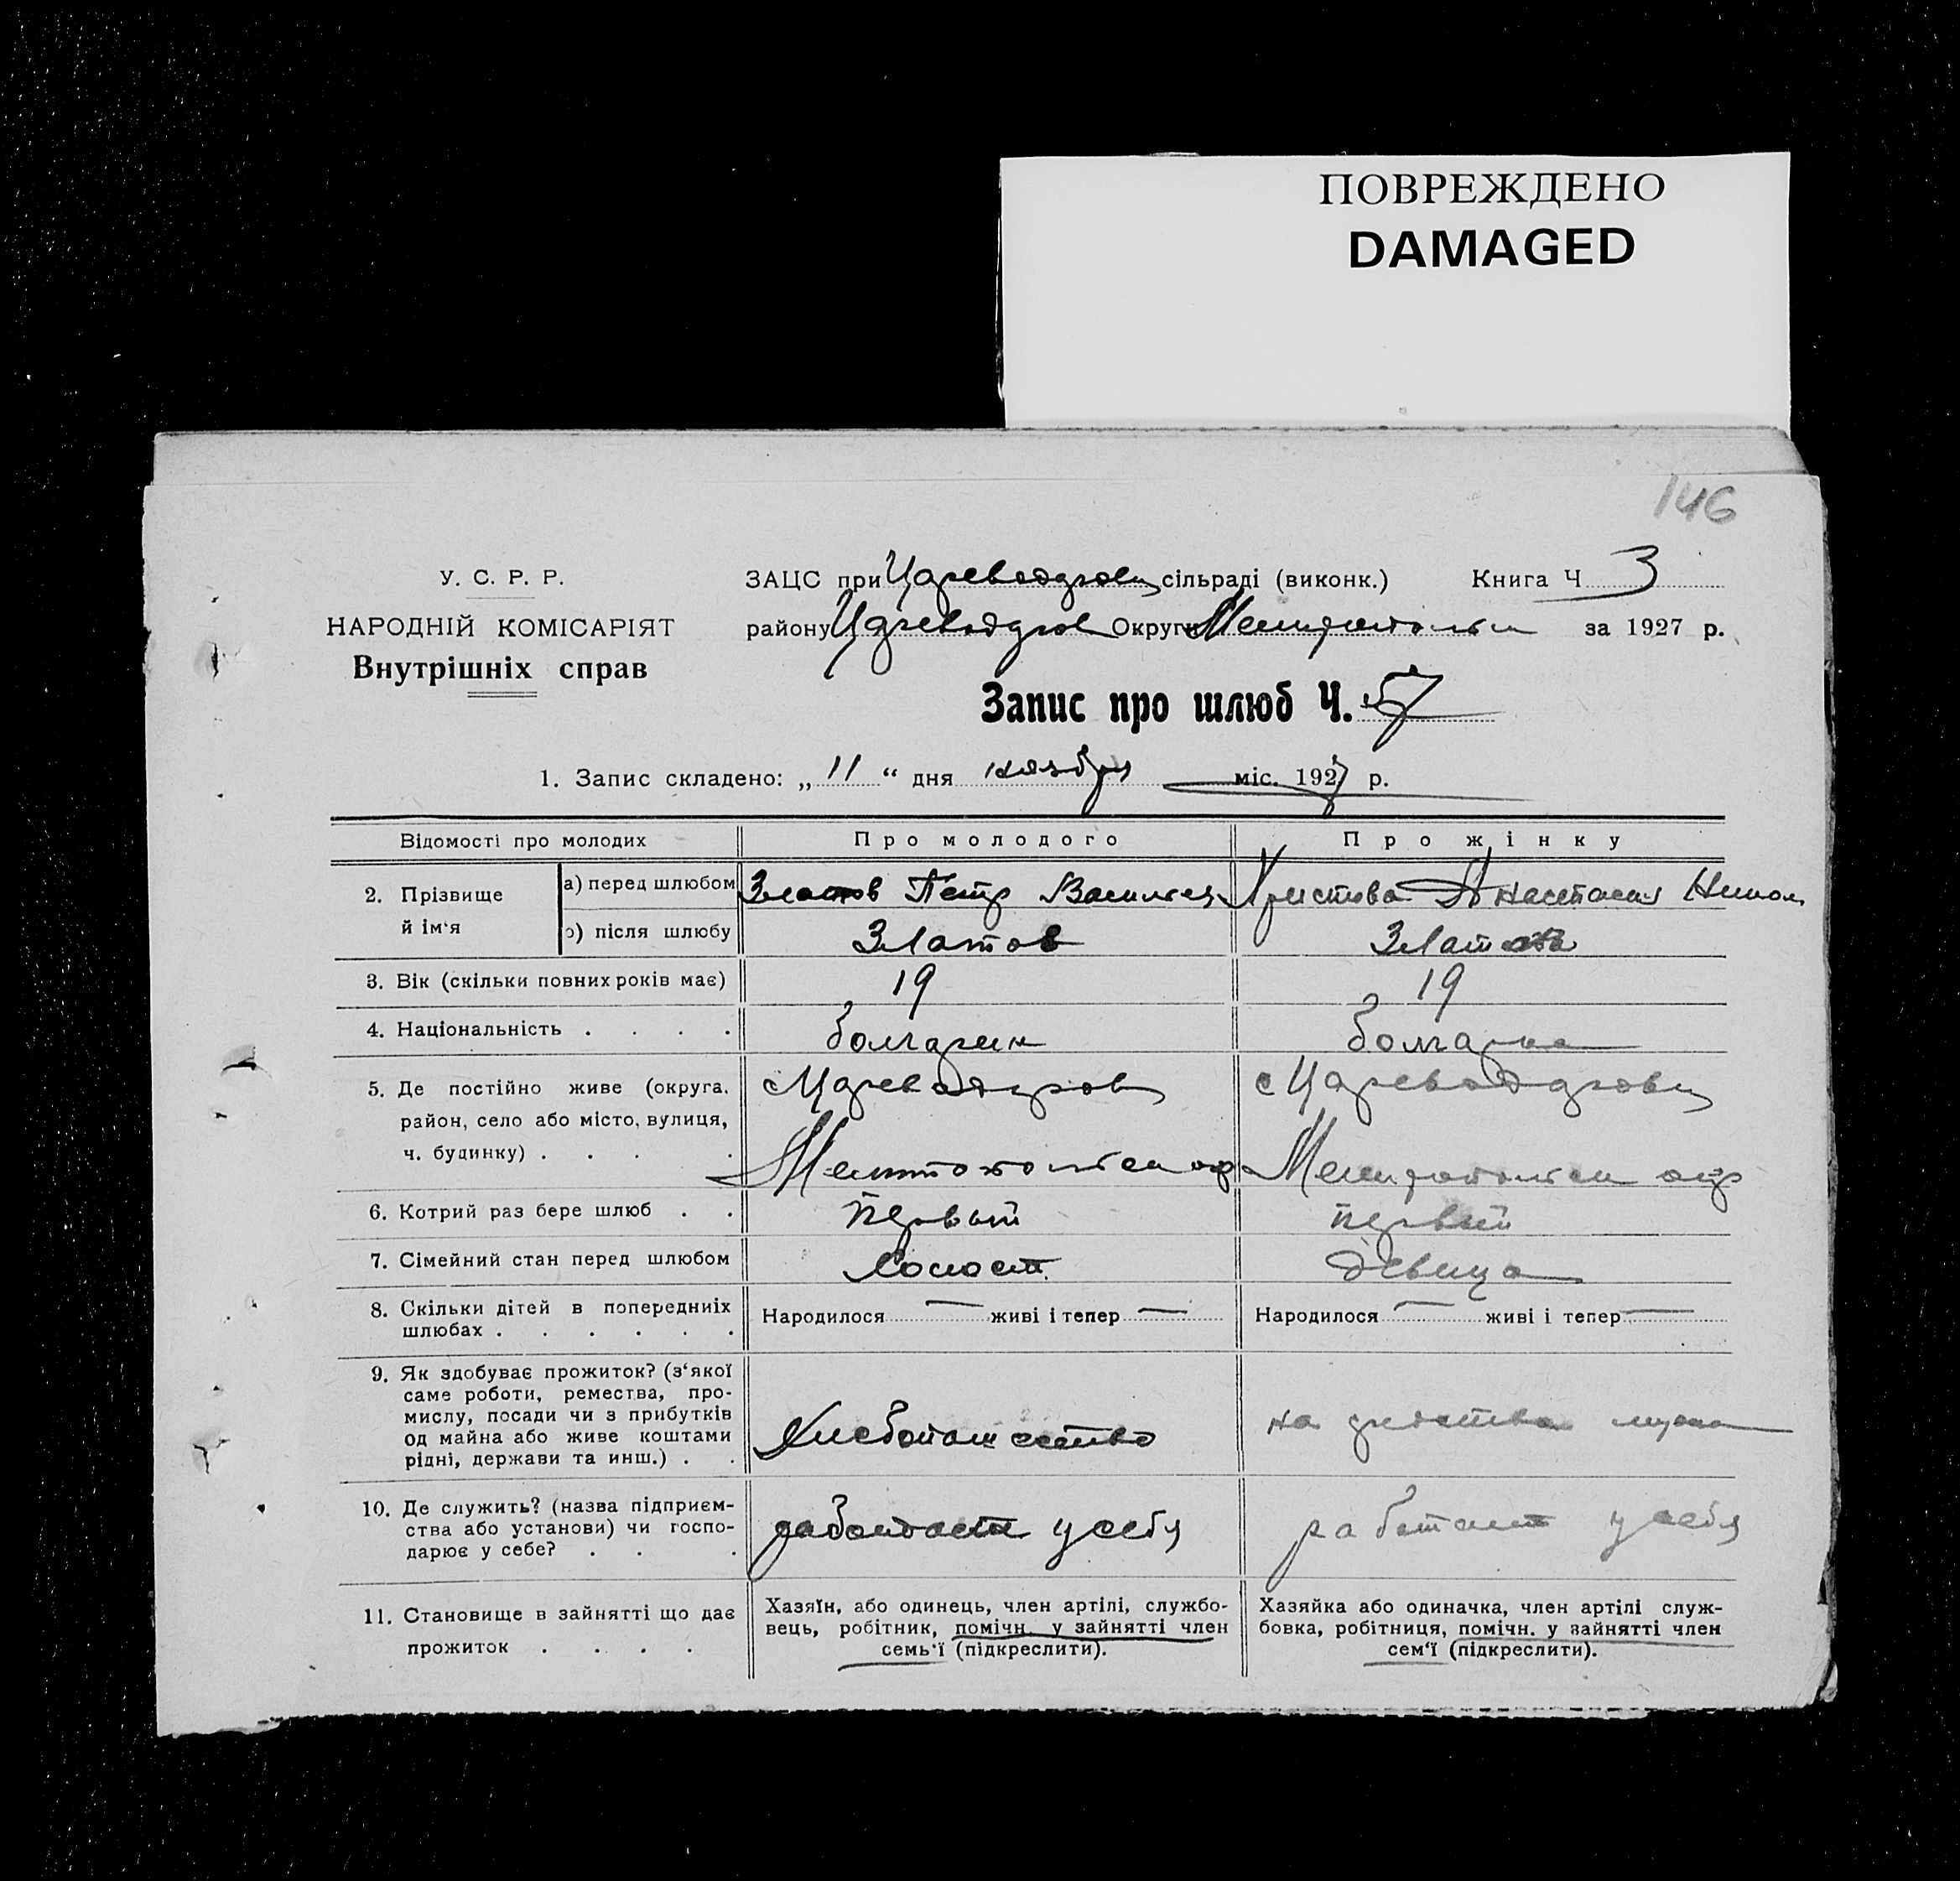 ПОВРЕЖДЕНО
DAMAGED
146
У. С. Р. Р.
НАРОДНІЙ КОМІСАРІЯТ
Внутрішніх справ
ЗАЦС при Цареводаровц сільраді (виконк.) Книга Ч 3
району Цареводаров Округи Мелитопольск за 1927 р.
Запис про шлюб Ч. 57
1. Запис складено: „ 11 “ дня ноября міс. 1927 р.
Відомості про молодих
Про молодого
Про жінку
2. Прізвище й ім‘я
а) перед шлюбом
Златов Петр Василиев
Христова Анастасия Никол.
б) після шлюбу
Златов
Златова
3. Вік (скільки повних років має)
19
19
4. Національність . . . .
болгарин
болгарка
5. Де постійно живе (округа,
район, село або місто, вулиця,
ч. будинку) . . . .
с Цареводаров
Мелитопольск окр
с Цареводаровц
Мелитопольск окр
6. Котрий раз бере шлюб . .
первый
первый
7. Сімейний стан перед шлюбом
Холост
девица
8. Скільки дітей в попередниіх
шлюбах . . . . . .
Народилося — живі і тепер —
Народилося — живі і тепер —
9. Як здобуває прожиток? (з‘якої
саме роботи, ремества, про-
мислу, посади чи з прибутків
од майна або живе коштами
рідні, держави та инш.) . .
Хлебопашество
на средства мужа
10. Де служить? (назва підприєм-
ства або установи) чи госпо-
дарює у себе? . . .
работает у себя
работает у себя
11. Становище в зайнятті що дає
прожиток . . . .
Хазяїн, або одинець, член артілі, службо-
вець, робітник, помічн. у зайнятті член
семь‘ї (підкреслити).
Хазяйка або одиначка, член артілі служ-
бовка, робітниця, помічн. у зайнятті член
сем‘ї (підкреслити).